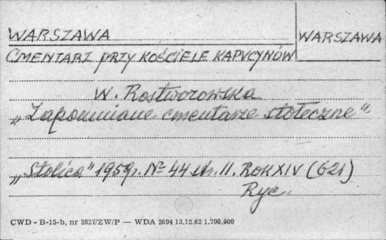 WARSZAWA
WARSZAWA
CMENTARZ PRZY KOŚCIELE KAPUCYNÓW
W. Rostworowska
„Zapomniane cmentarze stołeczne".
„Stolica" 1959r. Nº 44 str. 11. Rok XIV (621)
Ryc.
CWD - B-15-b, nr 2827/ZW/P — WDA 2694 13.12.62 1.700.000